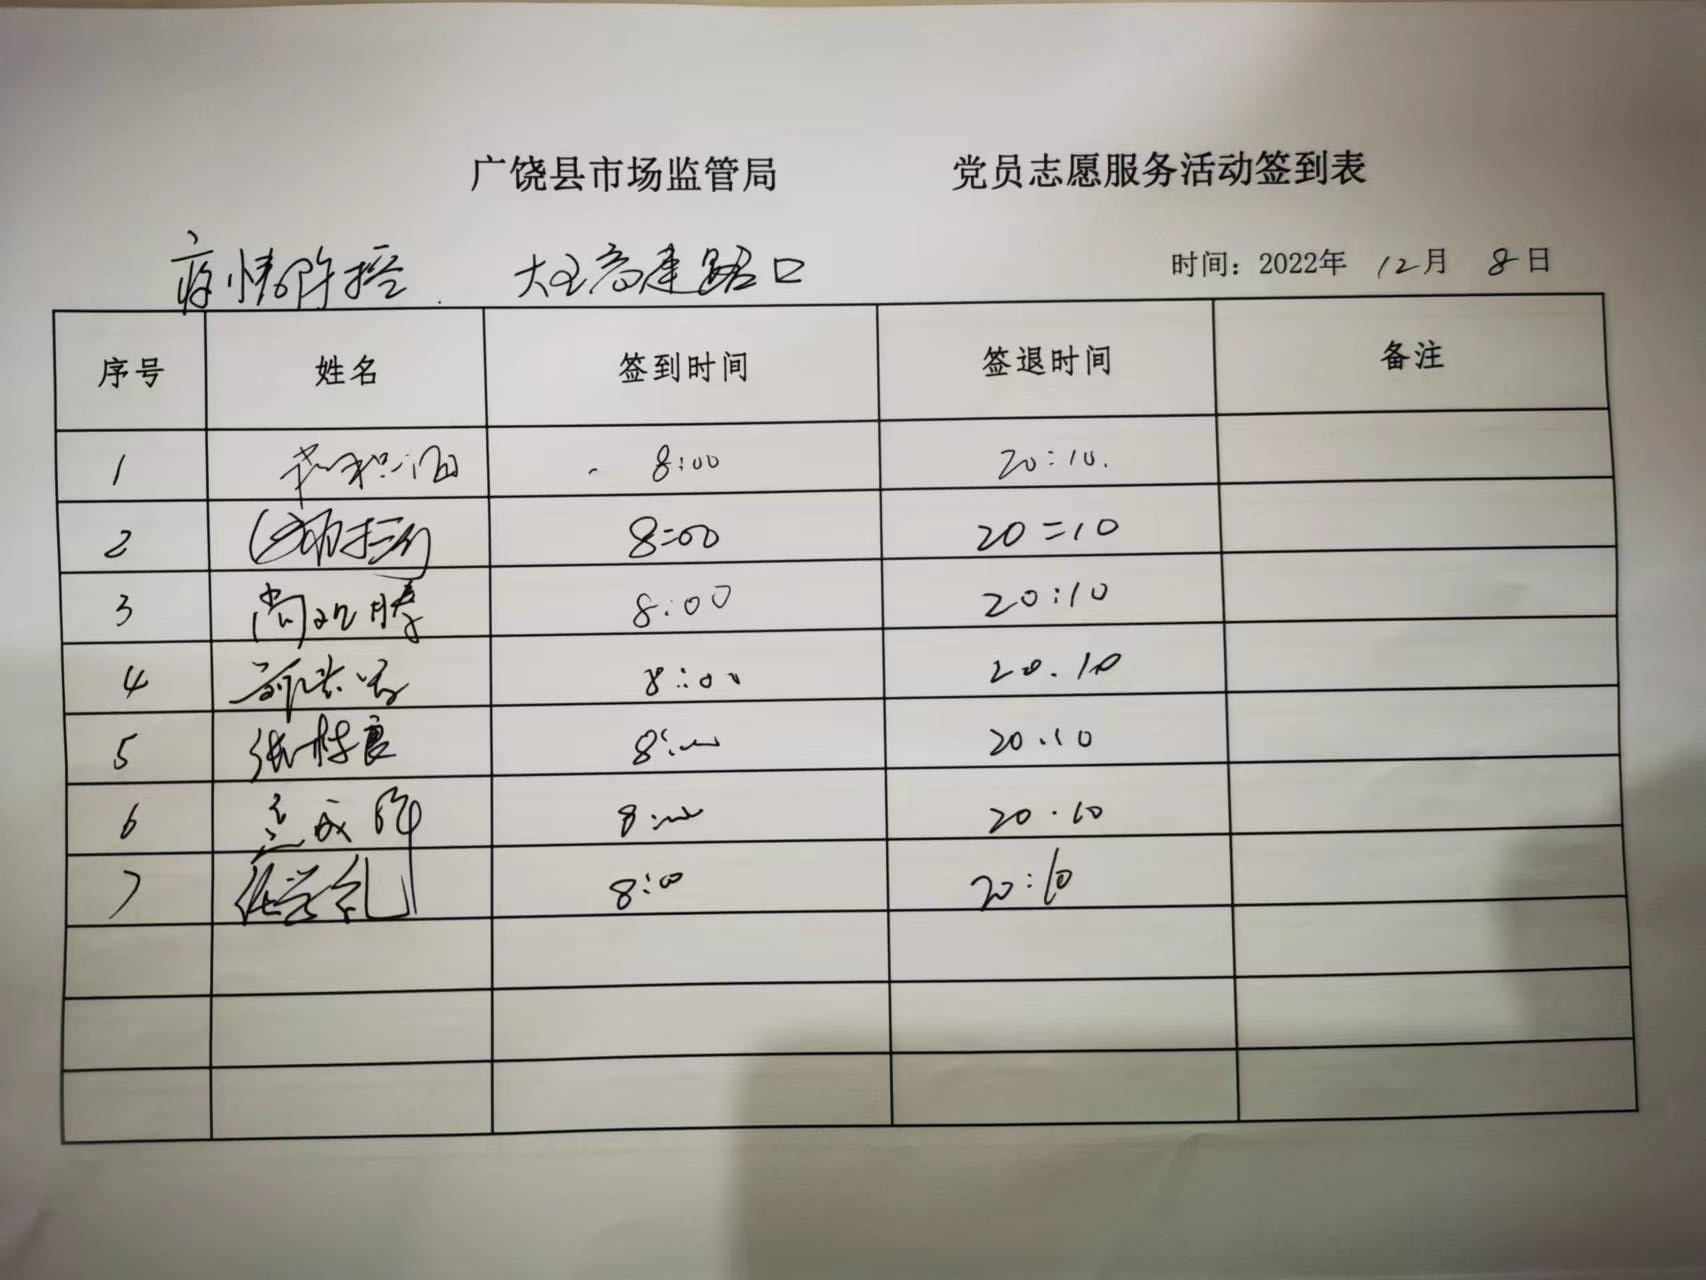 广饶县市场监管局 党员志愿服务活动签到表
疫情防控 大王高速路口 时间：2022年 12月 8日
序号 姓名 签到时间 签退时间 备注
1 8:00 20:10
2 8:00 20:10
3 8:00 20:10
4 8:00 20.10
5 张栋良 8:00 20.10
6 8:00 20.10
7 任学礼 8:00 20:10